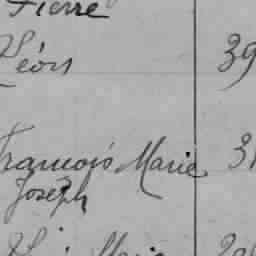 Pierre
Léon 39
François Marie
Joseph